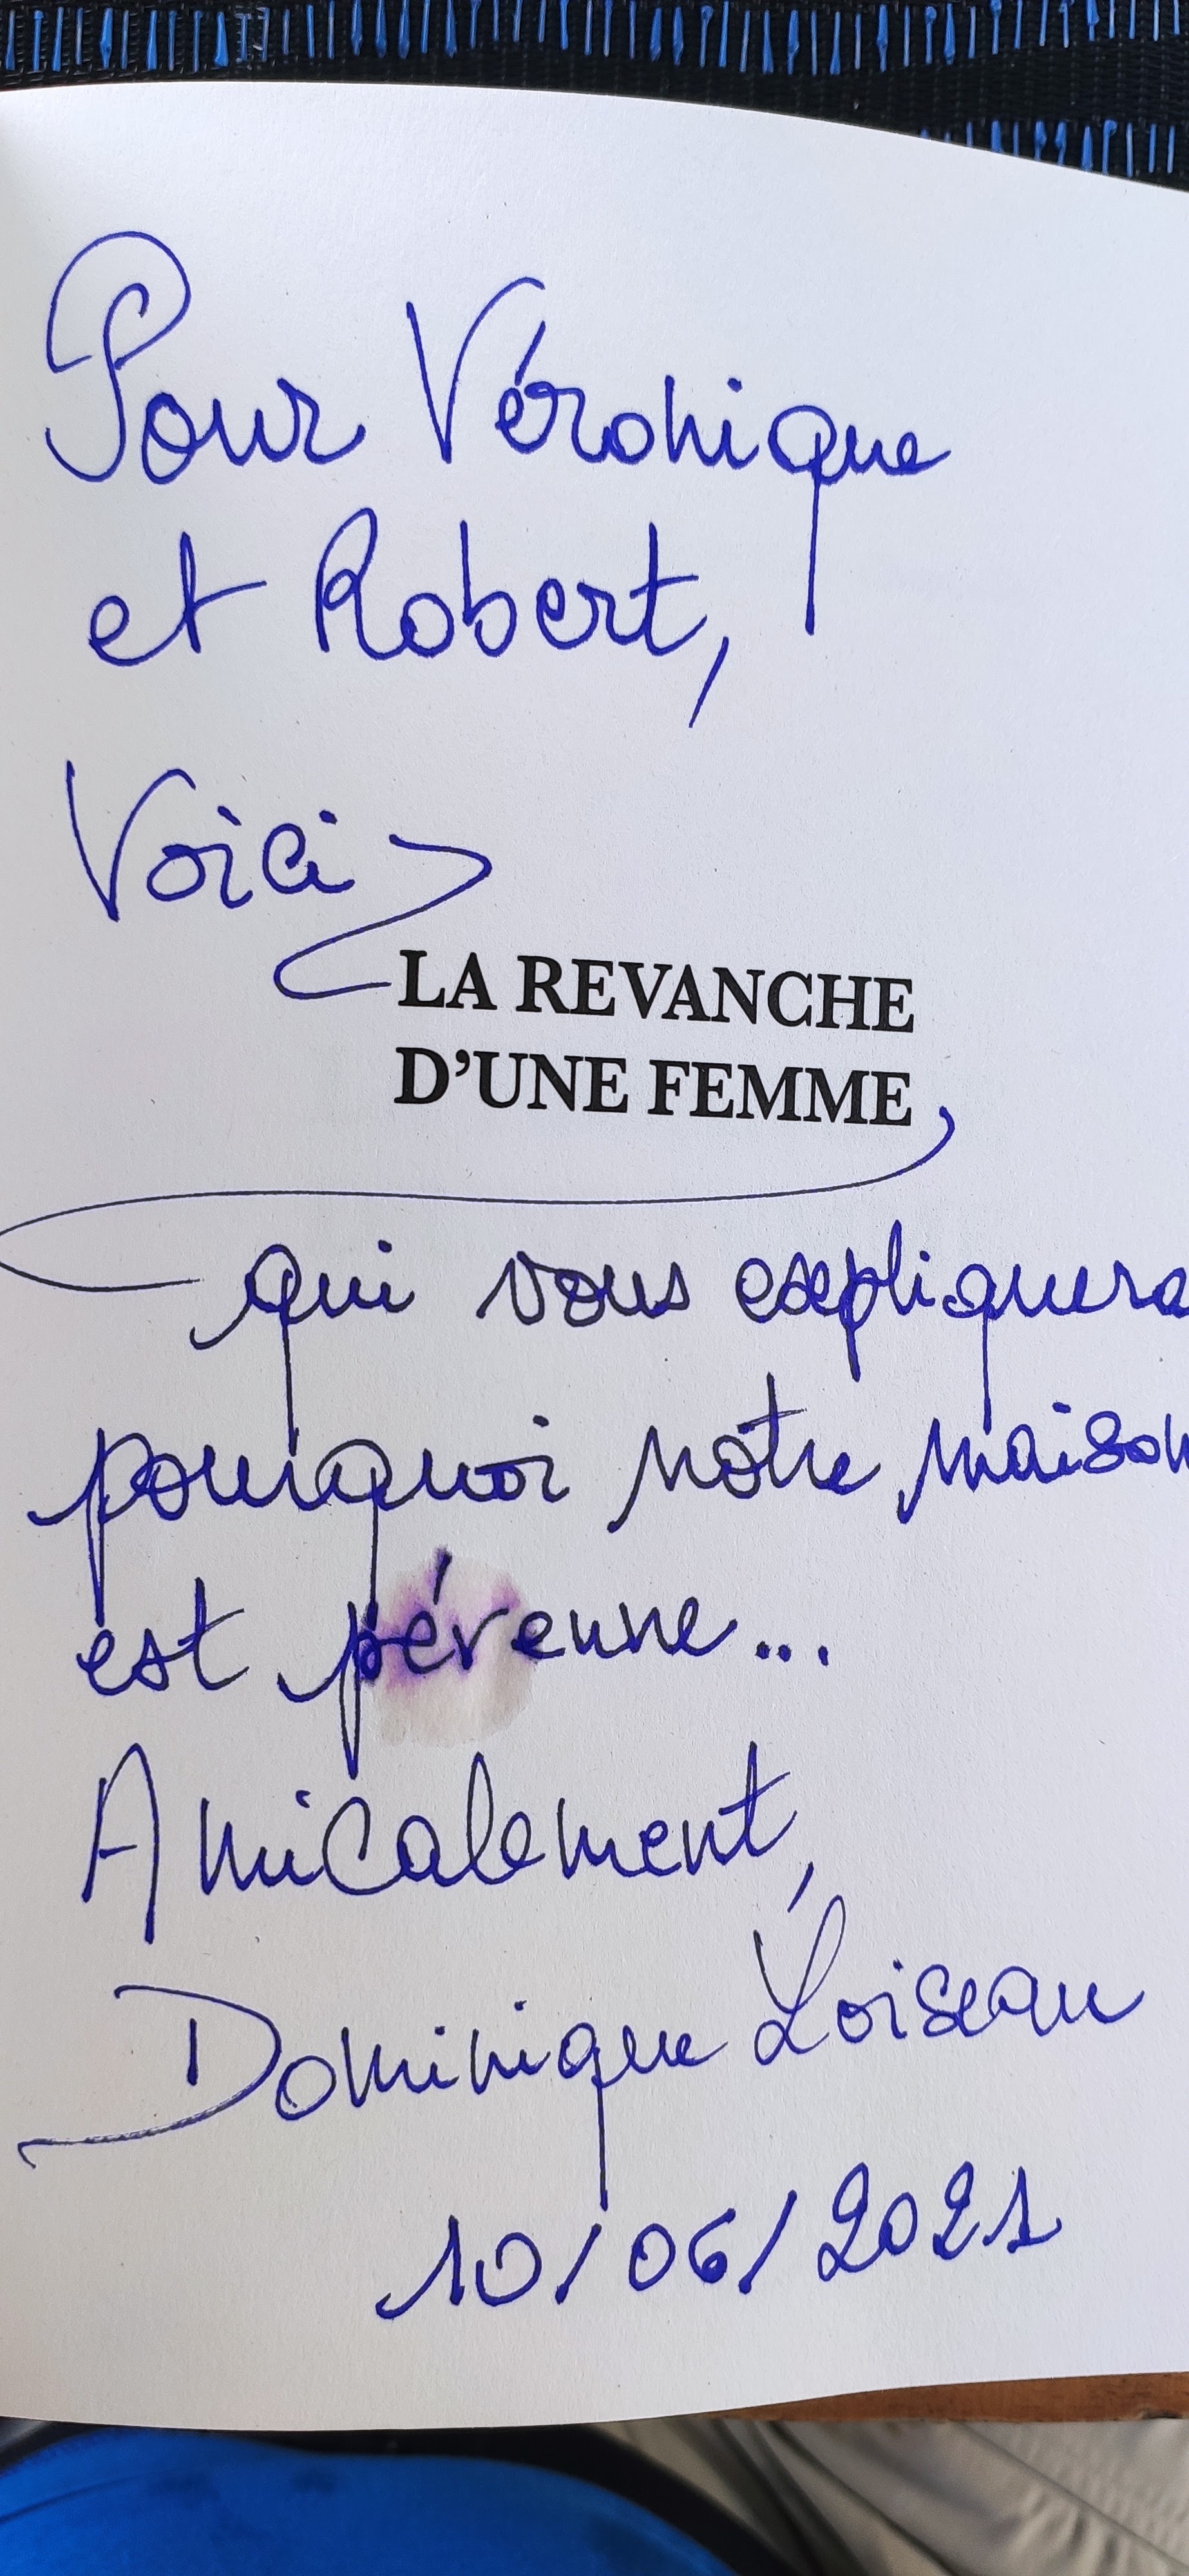 Pour Véronique
et Robert,
Voici
LA REVANCHE
D'UNE FEMME,
qui vous expliquera
pourquoi notre maison
est pérenne...
Amicalement,
Dominique Loiseau
10/06/2021